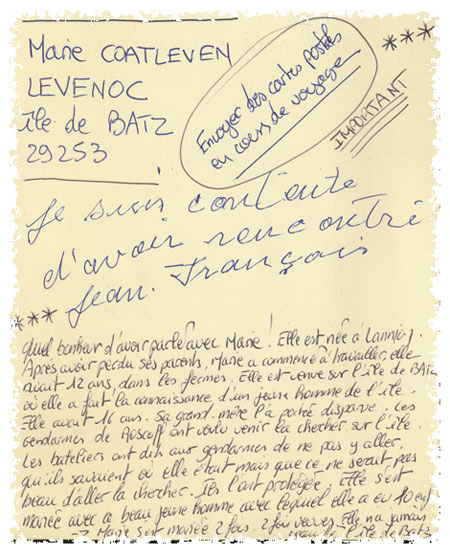 Marie COATLEVEN
LEVENOC
île de BATZ
29253
Envoyer des cartes postales
en cours de voyage
***
IMPORTANT
Je suis contente
d'avoir rencontré
Jean-François
***
Quel bonheur d'avoir parlé avec Marie ! Elle est née à Lannion.
Après avoir perdu ses parents, Marie a commencé à travailler, elle
avait 12 ans, dans les fermes. Elle est venue sur l'île de BATZ
où elle a fait la connaissance d'un jeune homme de l'île.
Elle avait 16 ans. Sa grand-mère l'a portée disparue. Les
gendarmes de Roscoff ont voulu venir la chercher sur l'île.
Les bateliers ont dit aux gendarmes de ne pas y aller,
qu'ils savaient où elle était mais que ce ne serait pas
beau d'aller la chercher. Ils l'ont protégée. Elle s'est
mariée avec ce beau jeune homme avec lequel elle a eu 10 enf
→ Marie s'est mariée 2 fois, 2 fois veuve. Elle n'a jamais
l'île de Batz